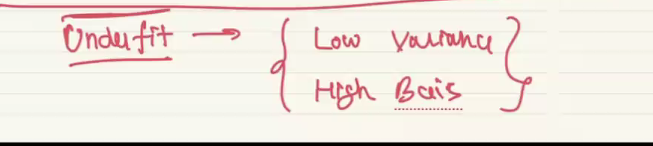 Underfit → { Low Variance
High Bais }